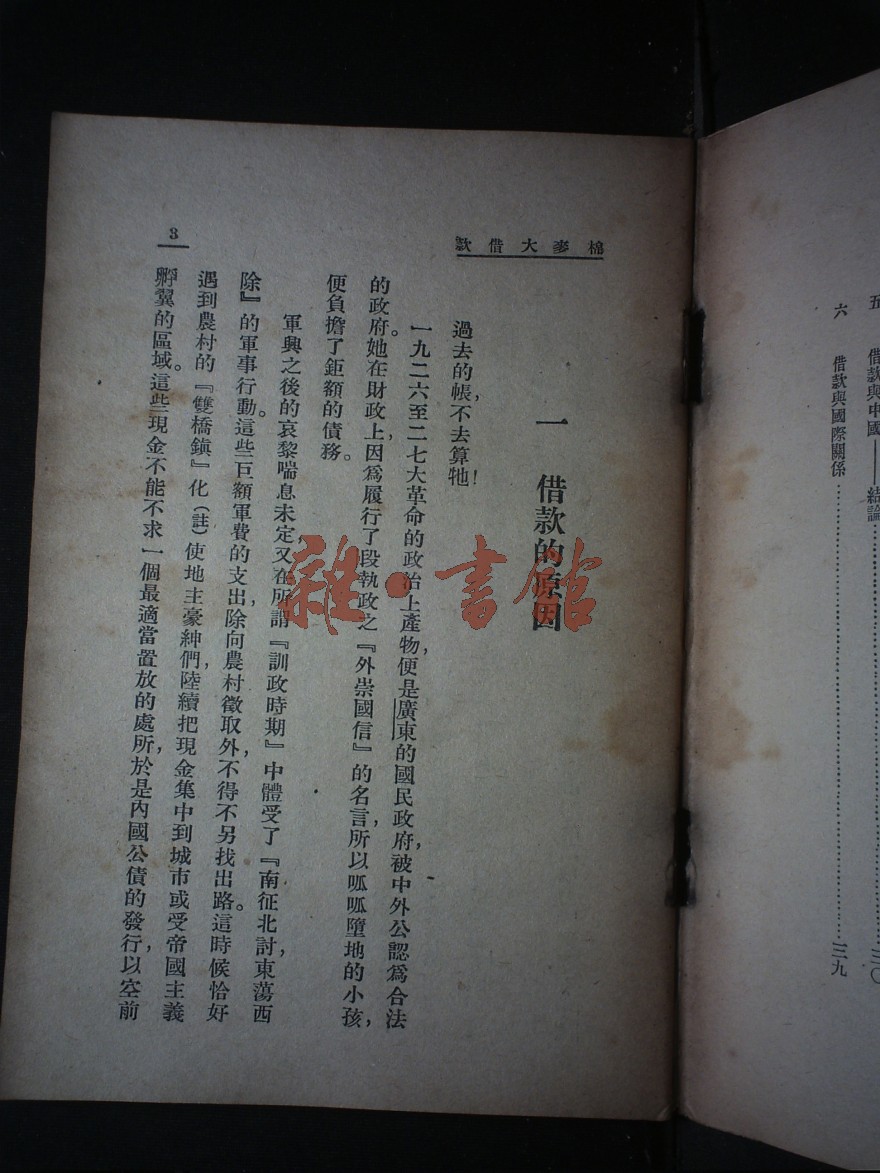 五　借款與中國——結論…………三〇
六　借款與國際關係…………三九
棉麥大借款
一　借款的原因
過去的帳，不去算牠！
一九二六至二七大革命的政治上產物，便是廣東的國民政府，被中外公認爲合法
的政府。她在財政上，因爲履行了段執政之『外崇國信』的名言，所以呱呱墮地的小孩，
便負擔了鉅額的債務。
軍興之後的哀黎喘息未定，又在所謂『訓政時期』中體受了『南征北討，東蕩西
除』的軍事行動。這些巨額軍費的支出，除向農村徵取外，不得不另找出路。這時候恰好
遇到農村的『雙橋鎭』化（註）使地主豪紳們，陸續把現金集中到城市或受帝國主義
孵翼的區域。這些現金不能不求一個最適當置放的處所，於是內國公債的發行，以空前
3
雜·書館